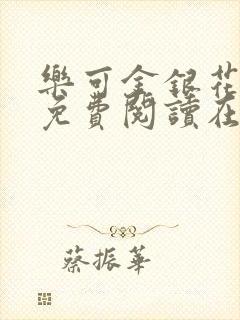 樂可金銀花
免費閱讀在
蔡振華